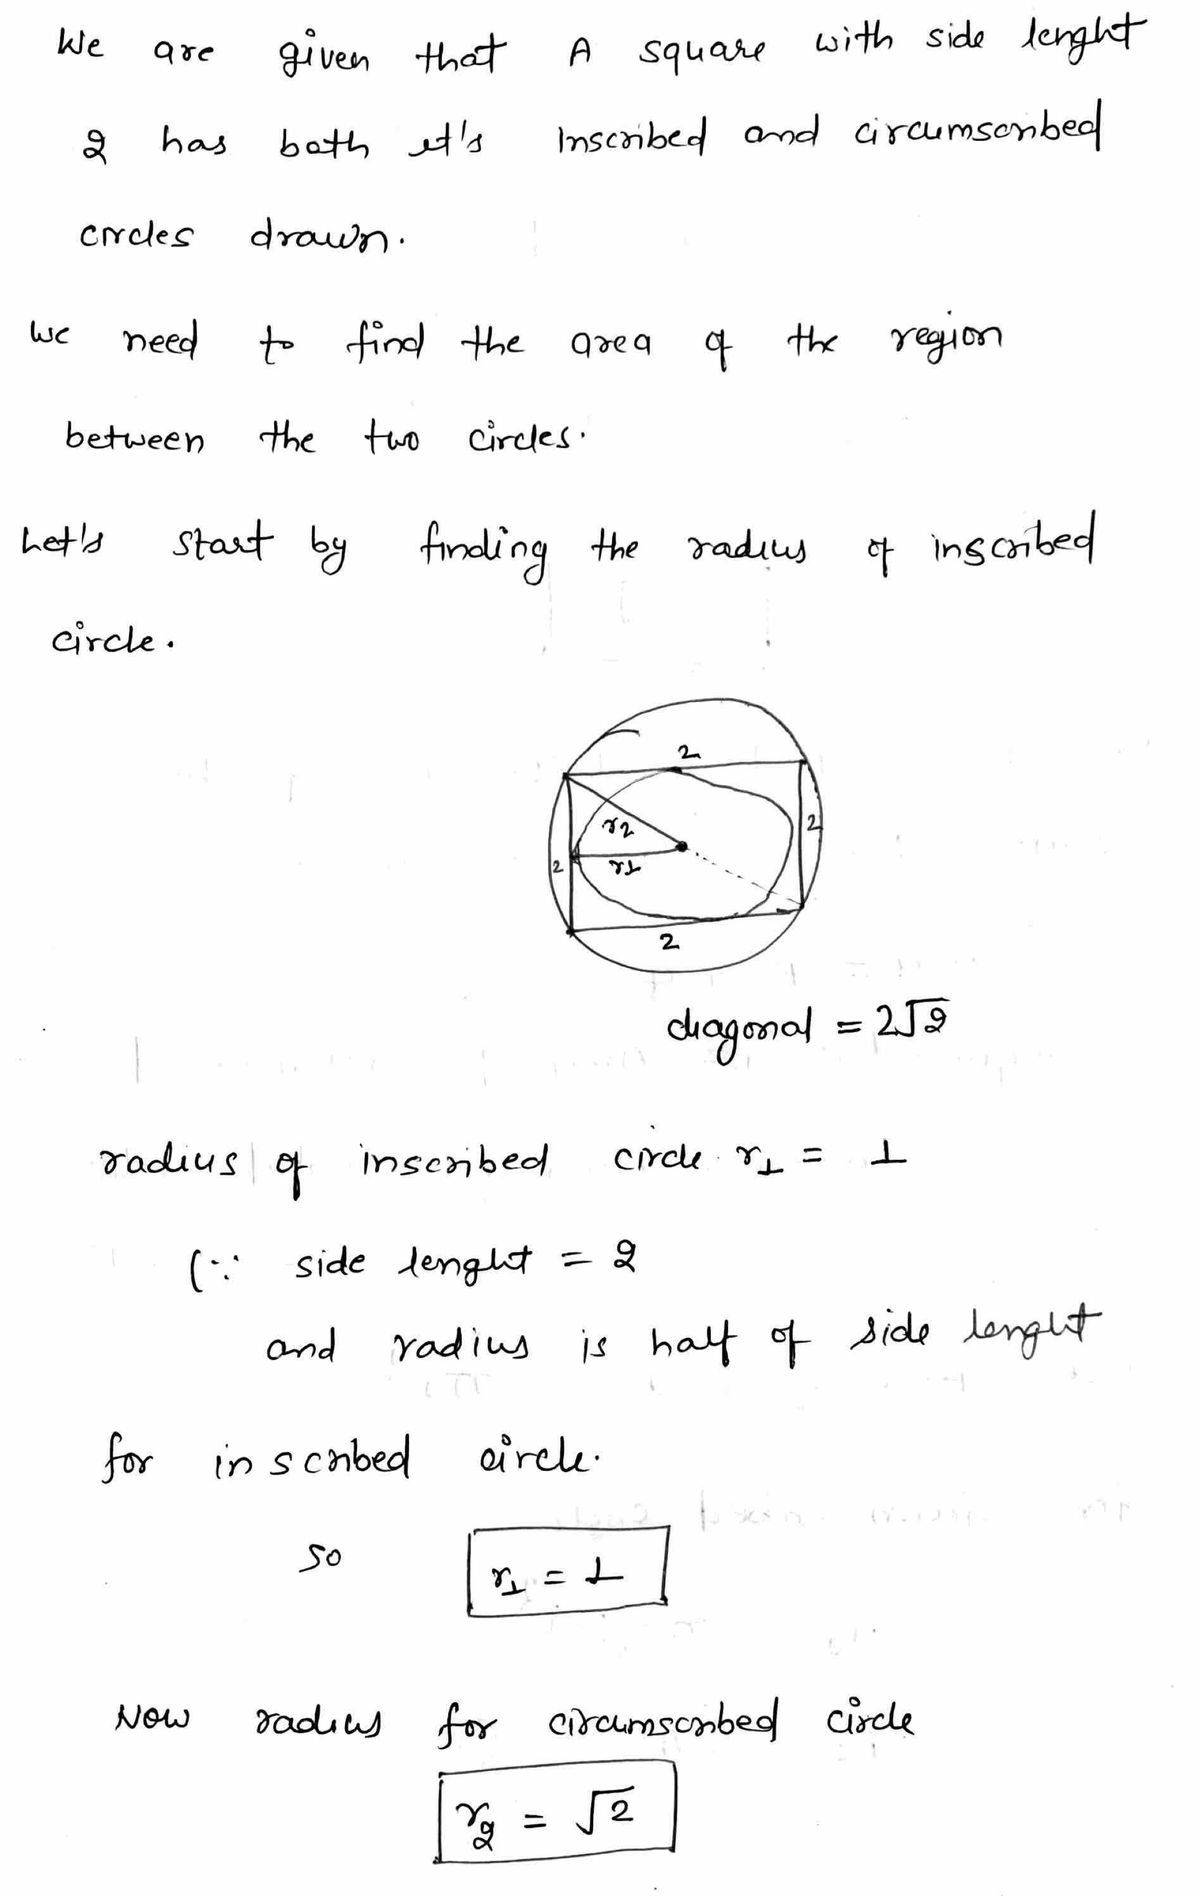 We are given that A square with side lenght
2 has both it's Inscribed and circumscribed
circles drawn.
We need to find the area of the region
between the two circles.
Let's start by finding the radius of inscribed
circle.
2
r2
2
r1
2
2
diagonal = 2√2
radius of inscribed circle r1 = 1
(∵ side lenght = 2
and radius is half of side lenght
for inscribed circle.
so r1 = 1
Now radius for circumscribed circle
r2 = √2